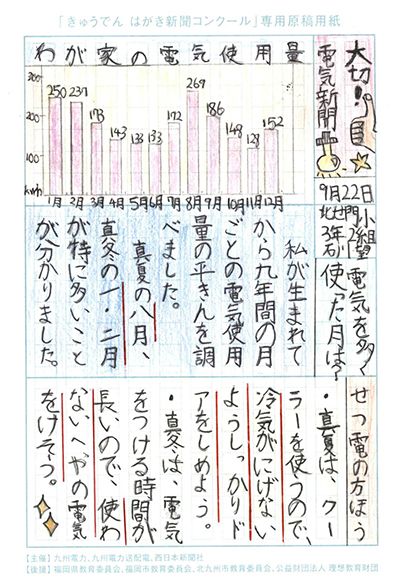 「きゅうでん はがき新聞コンクール」専用原稿用紙
大切!
電気新聞
9月22日
わが家の電気使用量
300
200
100
kwh
250 237 173 143 133 133 172 269 186 148 128 152
1月 2月 3月 4月 5月 6月 7月 8月 9月 10月 11月 12月
電気を多く
使った月は?
私が生まれて
から九年間の月
ごとの電気使用
量の平きんを調
べました。
真夏の八月、
真冬の一・二月
が特に多いこと
が分かりました。
せつ電の方ほう
・真夏は、クー
ラーを使うので、
冷気がにげない
ようしっかりド
アをしめよう。
・真冬は、電気
をつける時間が
長いので、使わ
ないへやの電気
をけそう。
【主催】九州電力、九州電力送配電、西日本新聞社
【後援】福岡県教育委員会、福岡市教育委員会、北九州市教育委員会、公益財団法人 理想教育財団